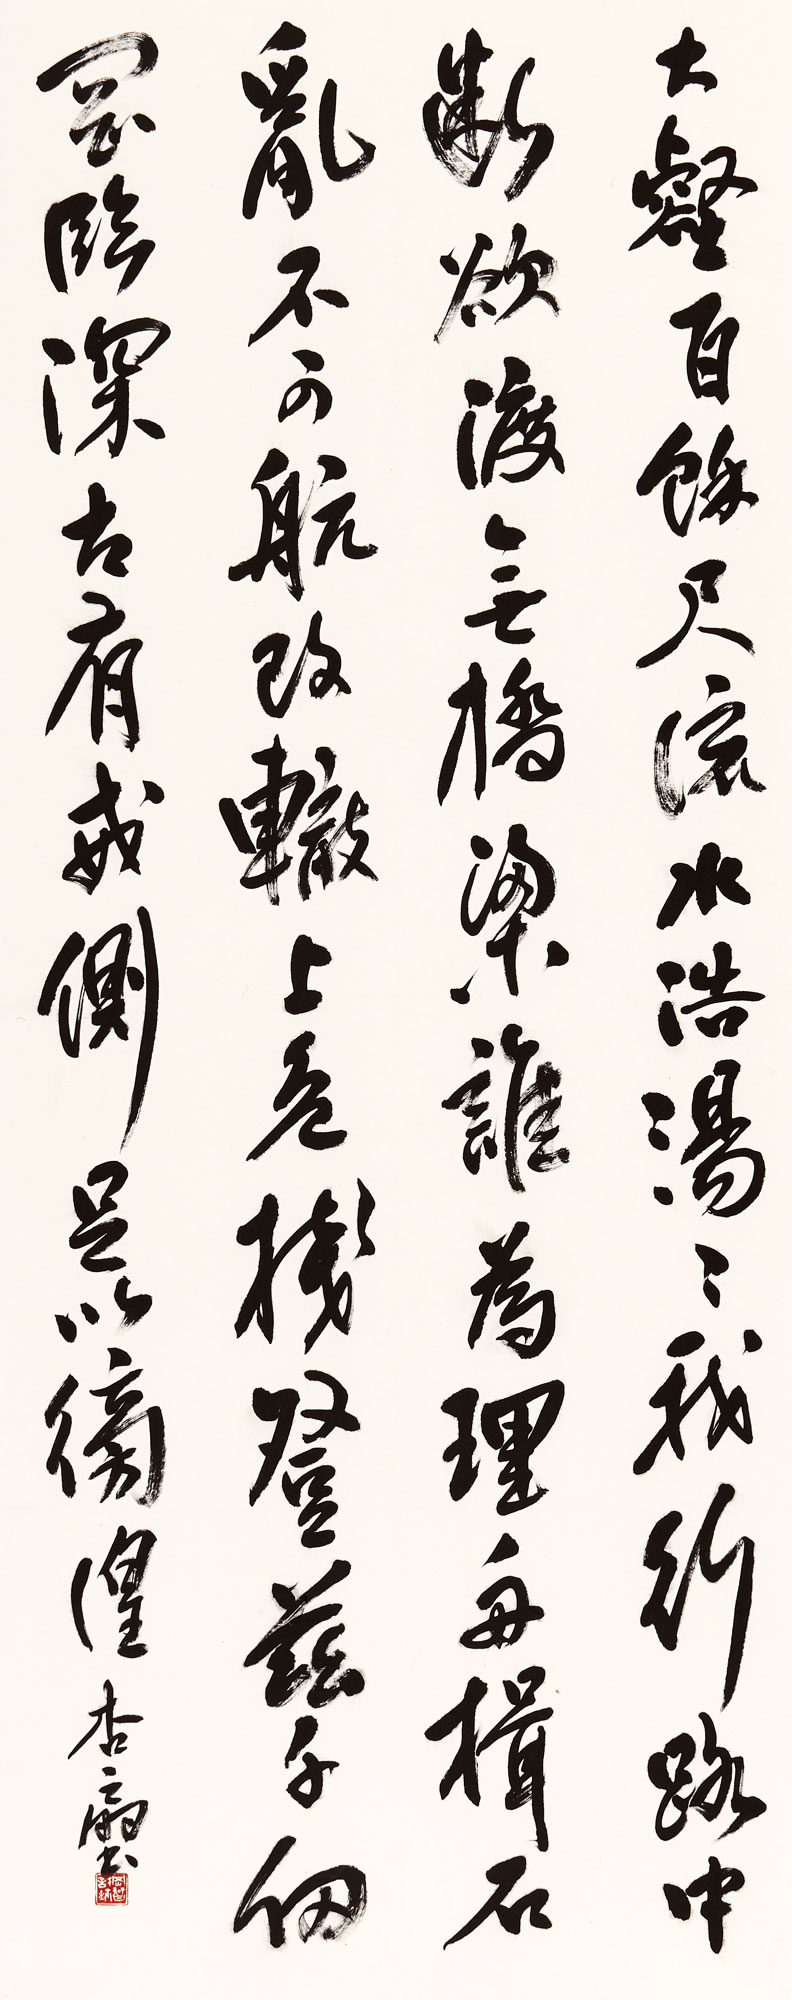 大壑百餘尺滾水浩湯〻我行路中
斷欲渡無橋梁誰為理舟楫石
亂不可航改轍上危棧登茲千仞
岡臨深古有戒側足以徬徨
杏書